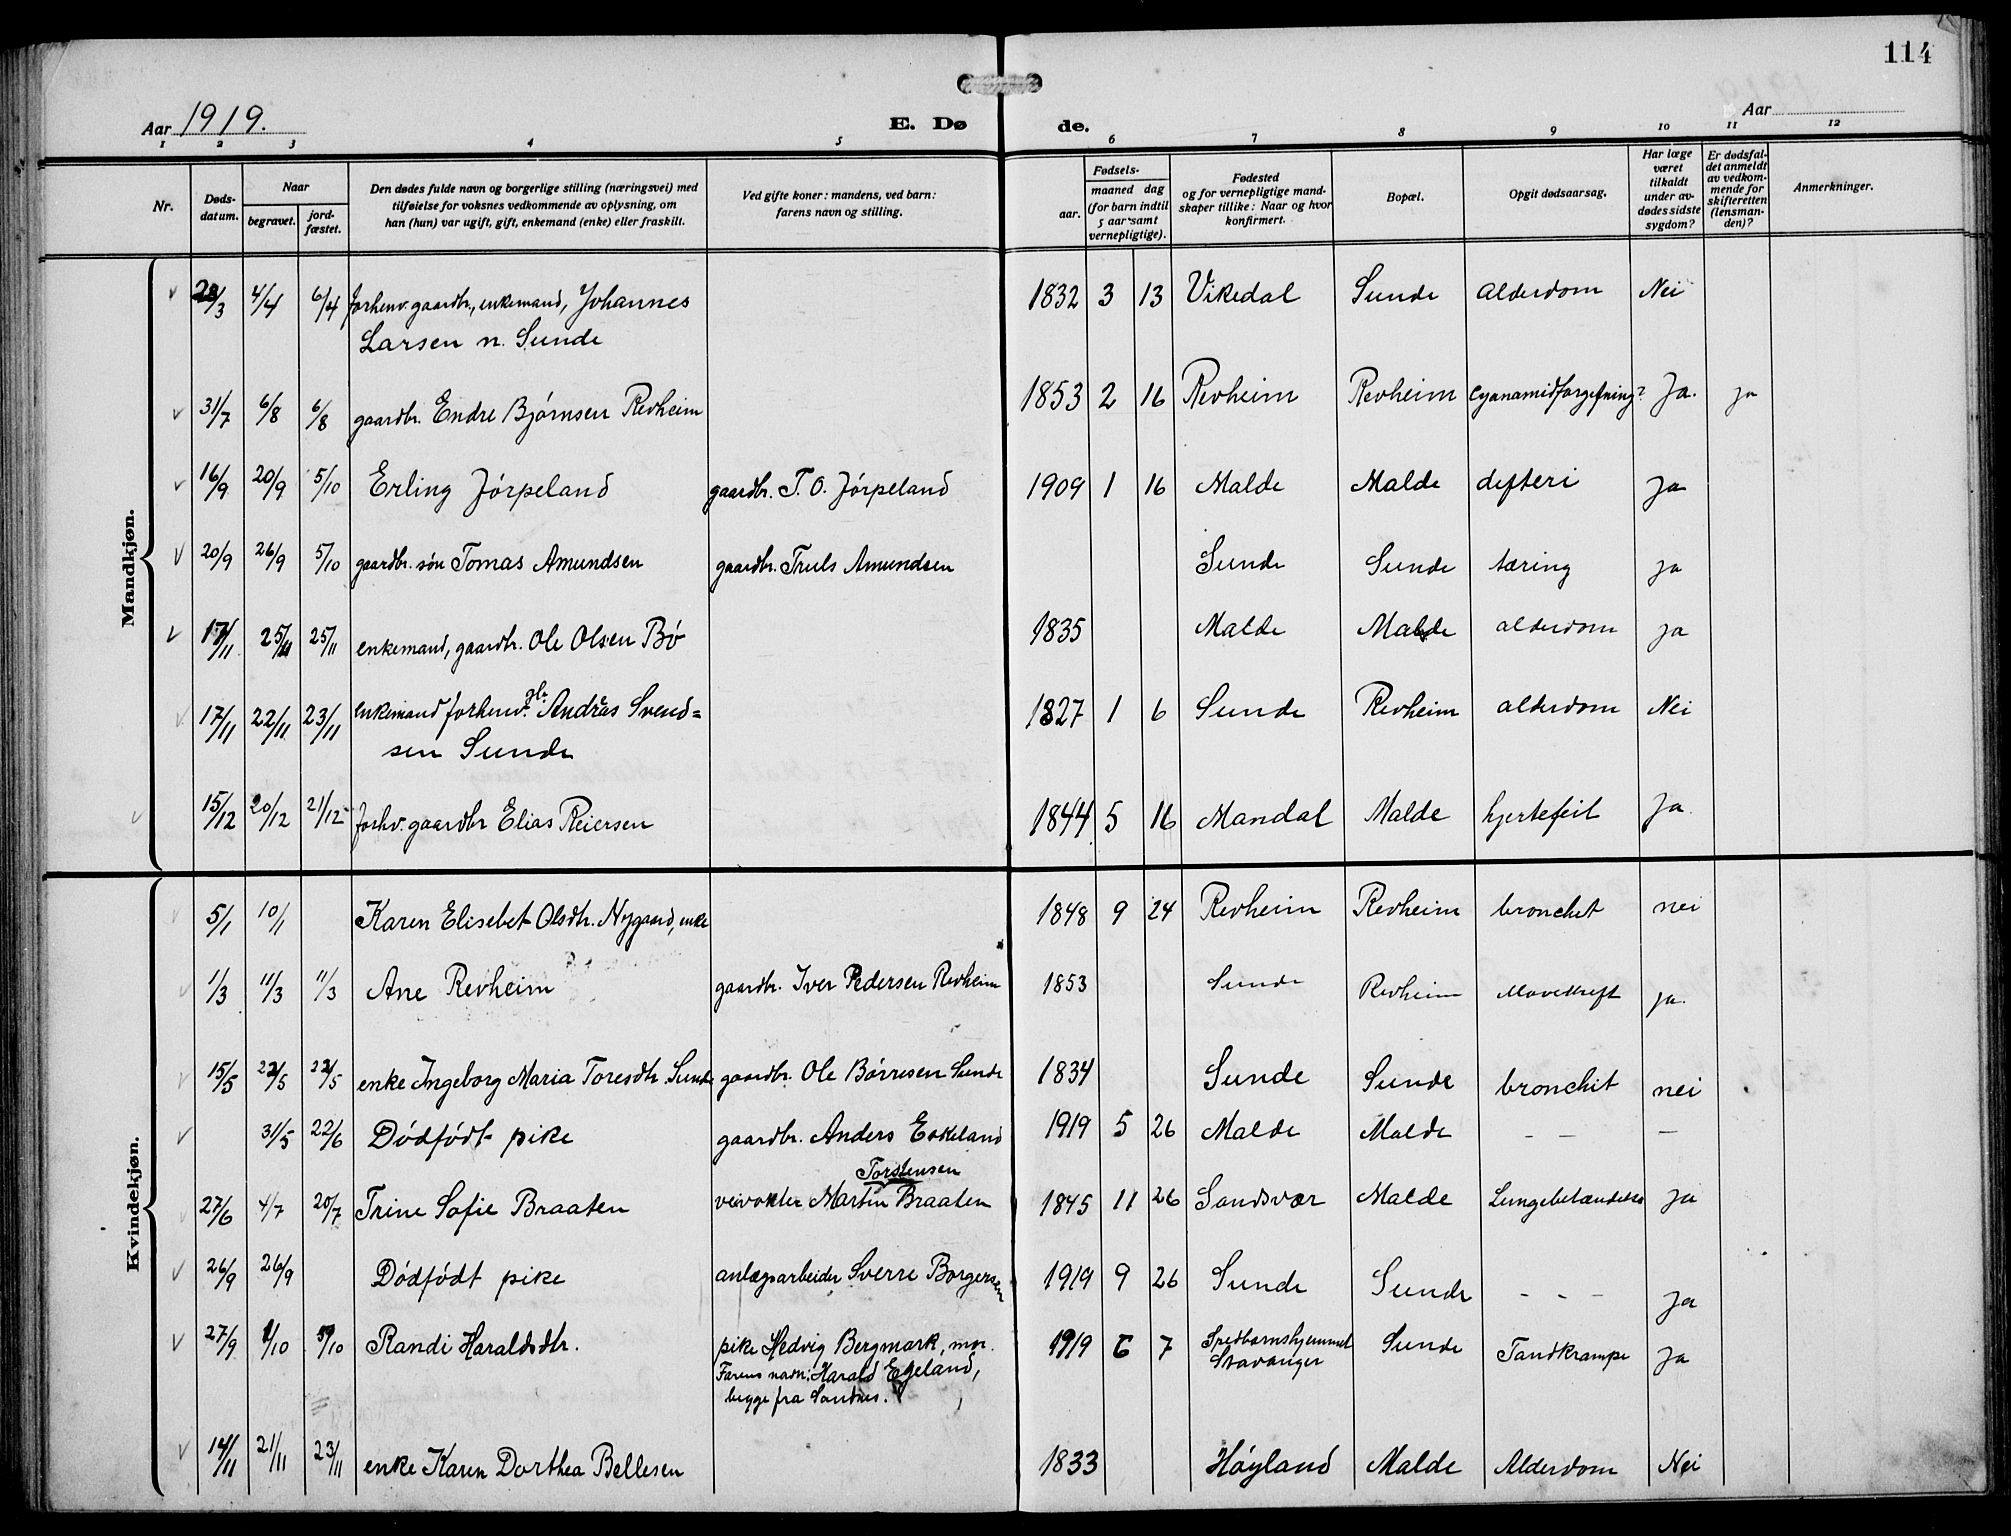 114
Aar 1919.
E. Dø de.
Aar
1 2 3 4 5 6 7 8 9 10 11 12
Nr.
Døds-
datum.
Naar
begravet.
jord-
fæstet.
Den dødes fulde navn og borgerlige stilling (næringsvei) med
tilføielse for voksnes vedkommende av oplysning, om
han (hun) var ugift, gift, enkemand (enke) eller fraskilt.
Ved gifte koner: mandens, ved barn:
farens navn og stilling.
Fødsels-
aar.
maaned dag
(for barn indtil
5 aar samt
vernepligtige).
Fødested
og for vernepligtige mand-
skaper tillike: Naar og hvor
konfirmert.
Bopæl.
Opgit dødsaarsag.
Har læge
været
tilkaldt
under av-
dødes sidste
sygdom?
Er dødsfal-
det anmeldt
av vedkom-
mende for
skifteretten
(lensman-
den)?
Anmerkninger.
Mandkjøn.
28/3 4/4 6/4 forhenv. gaardbr., enkemand, Johannes 1832 3 13 Vikedal Sunde Alderdom Nei
Larsen n. Sunde
31/7 6/8 6/8 gaardbr. Endre Bjørnsen Revheim 1853 2 16 Revheim Revheim Cyanamidforgiftning? Ja. ja
16/9 20/9 5/10 Erling Jørpeland gaardbr. T. O. Jørpeland 1909 1 16 Malde Malde difteri Ja
20/9 26/9 5/10 gaardbr. søn Tomas Amundsen gaardbr. Truls Amundsen Sunde Sunde tæring ja
17/11 25/11 25/11 enkemand, gaardbr. Ole Olsen Bø 1835 Malde Malde alderdom ja
17/11 22/11 23/11 enkemand forhenv. gbr. Andreas Svend= 1827 1 6 Sunde Revheim alderdom Nei
sen Sunde
15/12 20/12 21/12 forhv. gaardbr Elias Reiersen 1844 5 16 Mandal Malde hjertefeil Ja.
Kvindekjøn.
5/1 10/1 Karen Elisebet Olsdtr. Nygaard, enke 1848 9 24 Revheim Revheim bronchit nei
1/3 11/3 11/3 Ane Revheim gaardbr. Iver Pedersen Revheim 1853 Sunde Revheim Mavekreft ja.
15/5 22/5 22/5 enke Ingeborg Maria Toresdtr. Sunde gaardbr. Ole Børresen Sunde 1834 Sunde Sunde bronchit nei
31/5 22/6 Dödfödt pike gaardbr. Anders Eskeland 1919 5 26 Malde Malde – – –
Torstensen
27/6 4/7 20/7 Trine Sofie Braaten veivokter Martin Braaten 1845 11 26 Sandsvær Malde Lungebetændelse Ja
26/9 26/9 Dödfödt pike anlægsarbeider Sverre Borgersen 1919 9 26 Sunde Sunde – – – Ja
27/9 1/10 5/10 Randi Haraldsdtr. pike Hedvig Bergmark, mor. 1919 6 7 Spedbarnshjemmet Sunde Tandkrampe Ja
Farens navn: Harald Egeland, Stavanger
begge fra Sandnes.
14/11 21/11 23/11 enke Karen Dorthea Bellesen 1833 Høyland Malde Alderdom Nei